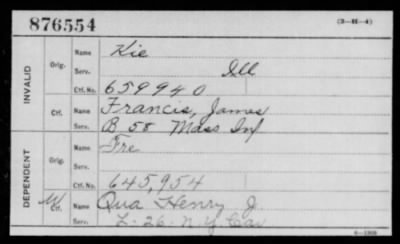 876554
(3—H—4)
INVALID
Orig.
Name Kie
Serv. Ill
Ctf. No. 659940
Ctf.
Name Francis, James
Serv. B 58 Mass Inf
DEPENDENT
Orig.
Name Fre
Serv.
Ctf. No. 645,954
W Ctf.
Name Qua Henry J.
Serv. L. 26. N.Y Cav
6—1908